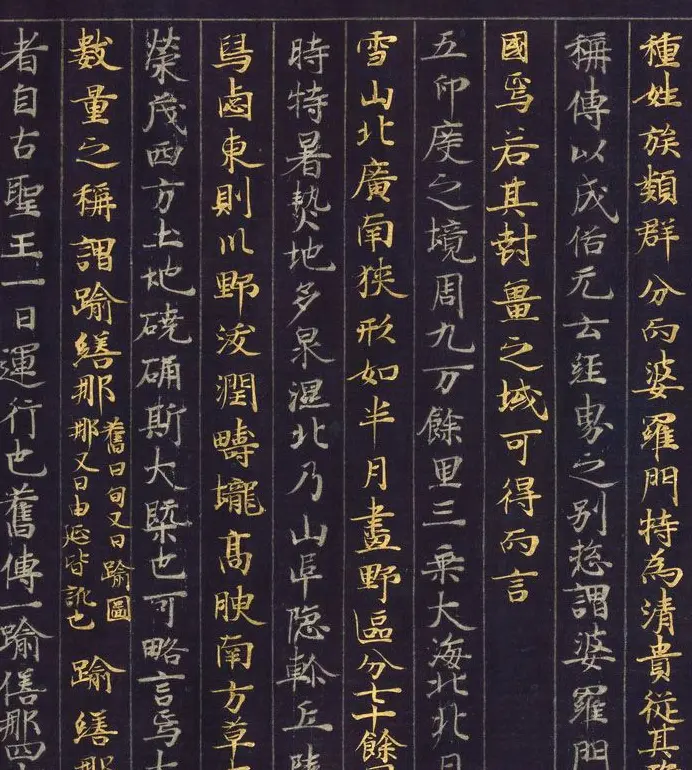 種姓族類群分而婆羅門特為清貴從其
稱傳以成俗无云經界之別惣謂婆羅門
國焉若其封畺之域可得而言
五印度之境周九万餘里三乗大海北背
雪山北廣南狹形如半月畫野區分七十餘
時特暑熱地多泉濕北乃山阜隱軫丘陵
舄鹵東則川野沃潤疇壠高腴南方草
榮茂西方土地磽确斯大槩也可略言焉
數量之稱謂踰繕那
舊曰旬又曰踰闍
那又曰由延皆訛也
踰繕那
者自古聖王一日運行也舊傳一踰繕那四